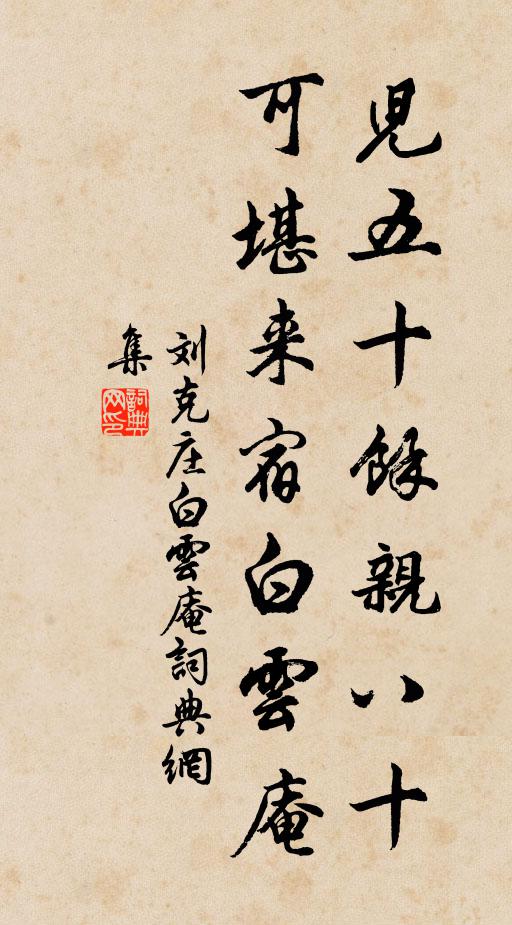 兒五十餘親八十
可堪来宿白雲庵
刘克庄白雲庵詞典網
集
詞典网印